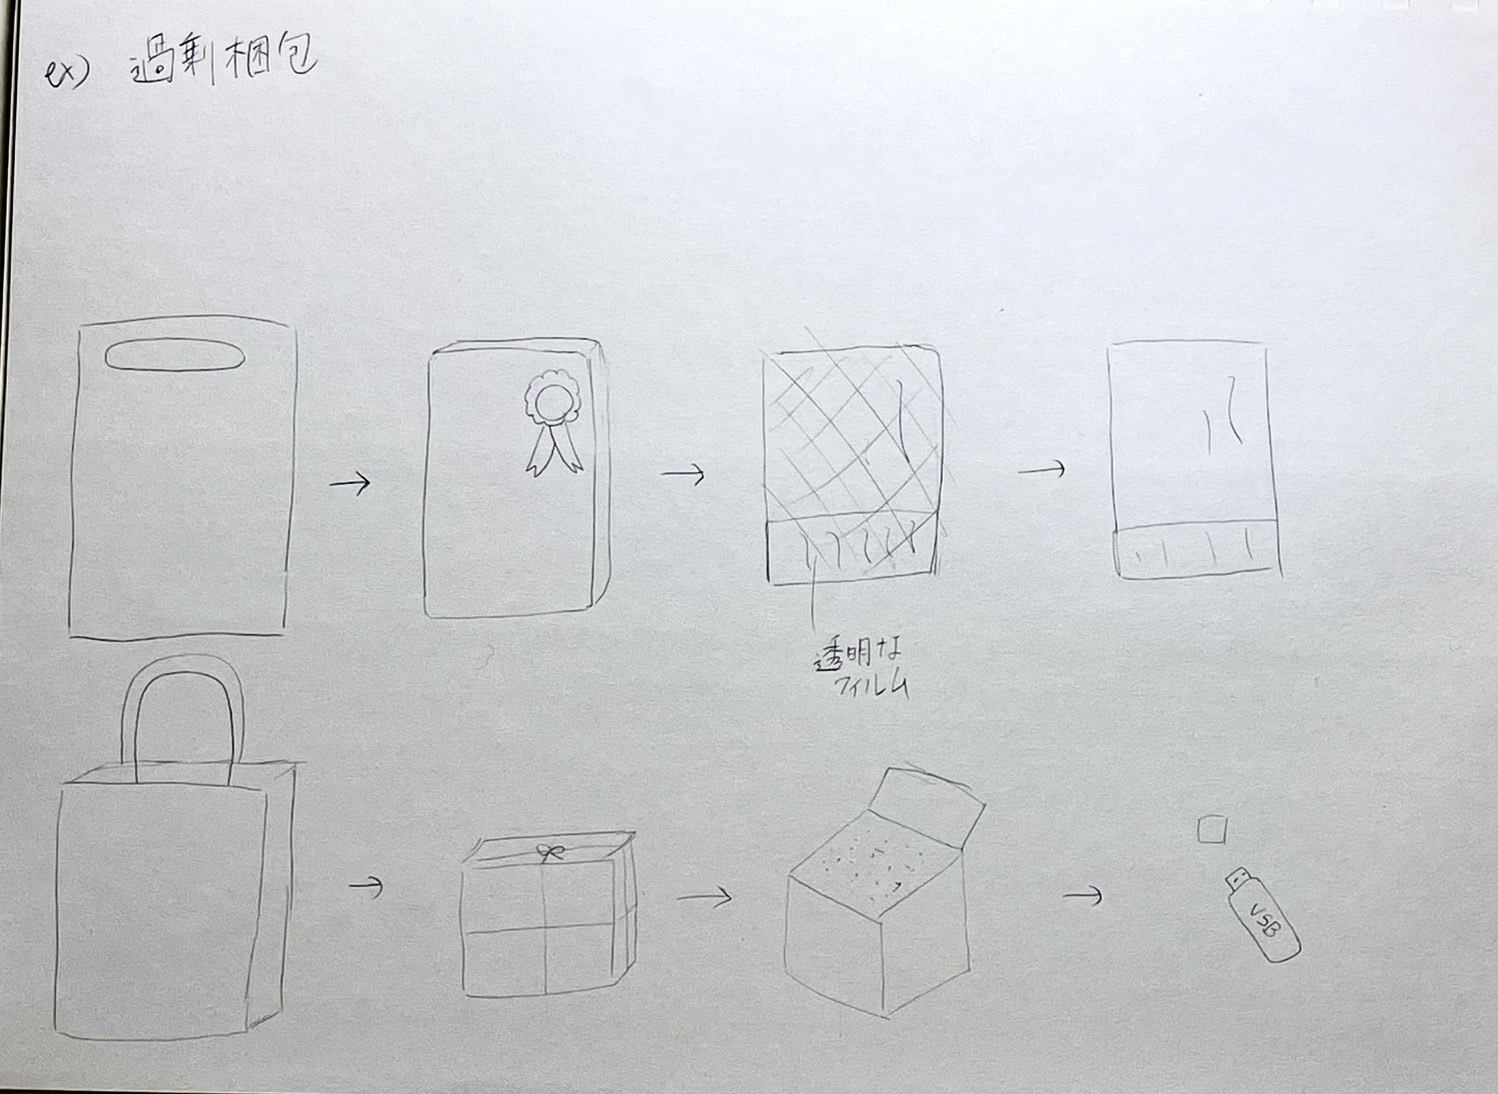 ex) 過剰梱包
透明な
フィルム
USB